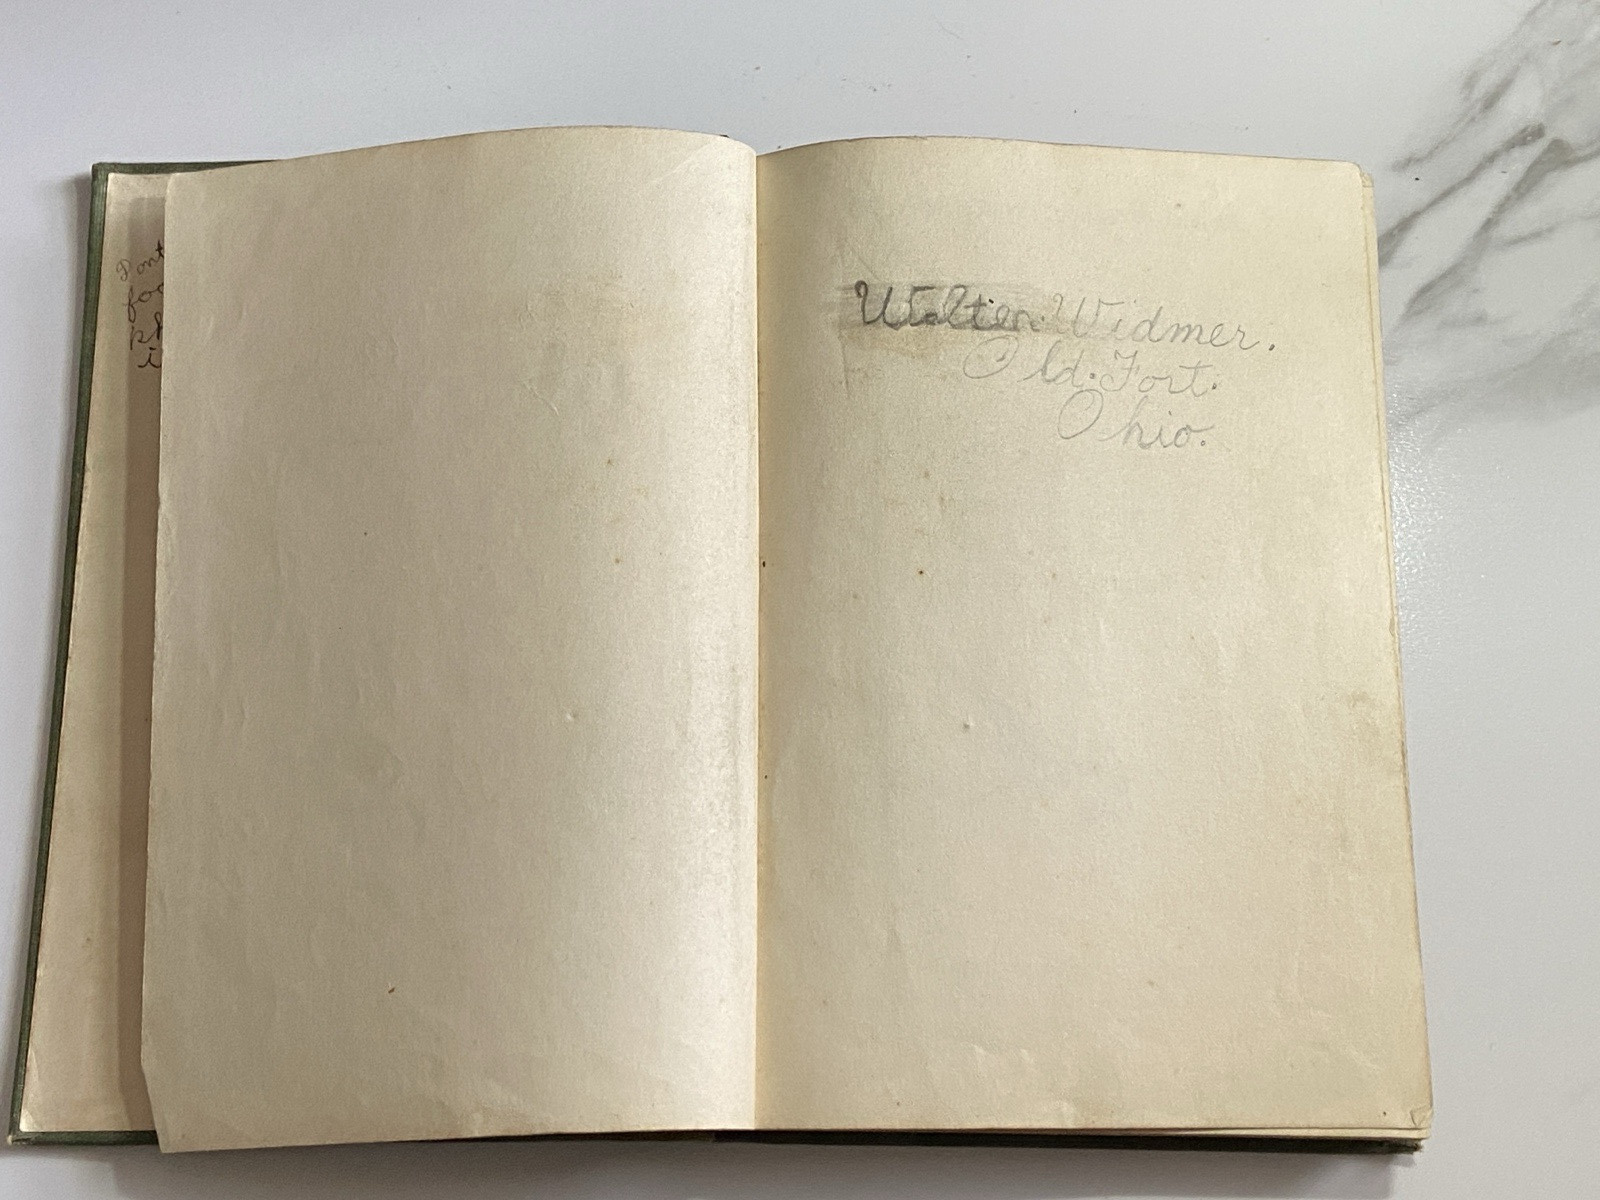 Dont
foo
ph
i
Walter Widmer.
Old. Fort.
Ohio.